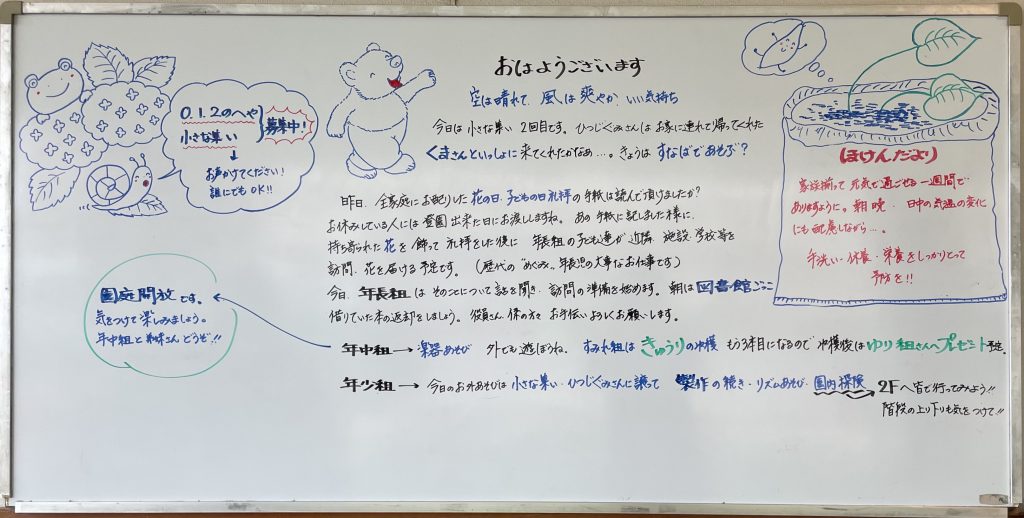 おはようございます
空は晴れて、風は爽やか、いい気持ち
今日は小さな集い2回目です。ひつじぐみさんはお家に連れて帰ってくれた
くまさんといっしょに来てくれたかなぁ…。きょうはすなばであそぶ?
昨日、全家庭にお配りした花の日・子どもの日礼拝の手紙は読んで頂けましたか?
お休みしている人には登園出来た日にお渡ししますね。あの手紙に記しました様に、
持ち寄られた花を飾って礼拝をした後に年長組の子ども達が近隣、施設、学校等を
訪問、花を届ける予定です。(歴代の“めぐみ”年長児の大事なお仕事です)
今日、年長組はそのことについて話を聞き、訪問の準備を始めます。朝は図書館ごっこ
借りていた本の返却をしましょう。役員さん、係の方々お手伝いよろしくお願いします。
年中組→楽器あそび 外でも遊ぼうね。すみれ組はきゅうりの収穫 もう3本目になるので収穫後はゆり組さんへプレゼント予定。
年少組→今日のお外あそびは小さな集い・ひつじぐみさんに譲って 製作の続き・リズムあそび・園内探険→2Fへ皆で行ってみよう!!
階段の上り下りも気をつけて!!
0.1.2のへや
小さな集い
募集中!
↓
お声かけてください!
誰にでもOK!!
園庭開放です。
気をつけて楽しみましょう。
年中組と 皆さんどうぞ!!
ほけんだより
家族揃って元気で過ごせる一週間で
ありますように。朝晩、日中の気温の変化
にも配慮しながら…。
手洗い・休養・栄養をしっかりとって
予防を!!